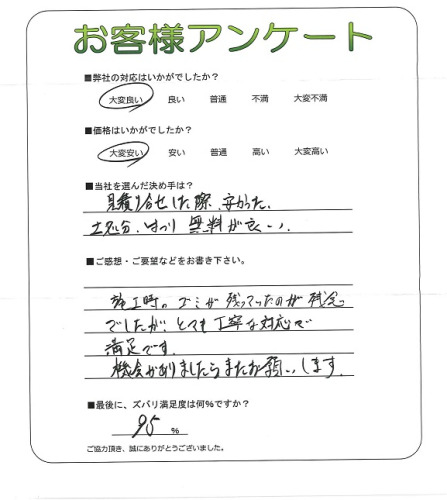 お客様アンケート
■弊社の対応はいかがでしたか？
大変良い 良い 普通 不満 大変不満
■価格はいかがでしたか？
大変安い 安い 普通 高い 大変高い
■当社を選んだ決め手は？
見積り合せした際、安かった。
土処分、はつり 無料が良い。
■ご感想・ご要望などをお書き下さい。
施工時のゴミが残っていたのが残念
でしたが、とても丁寧な対応で
満足です。
機会がありましたらまたお願いします。
■最後に、ズバリ満足度は何％ですか？
95 ％
ご協力頂き、誠にありがとうございました。